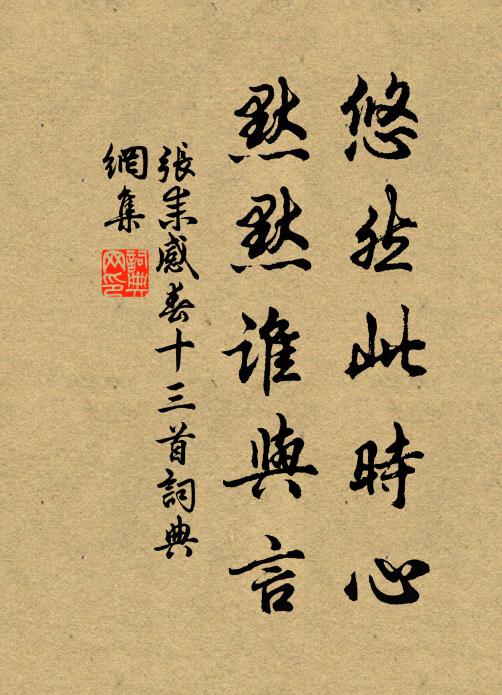 悠然此時心
默默誰與言
張耒感春十三首詞典
網集
詞典網印